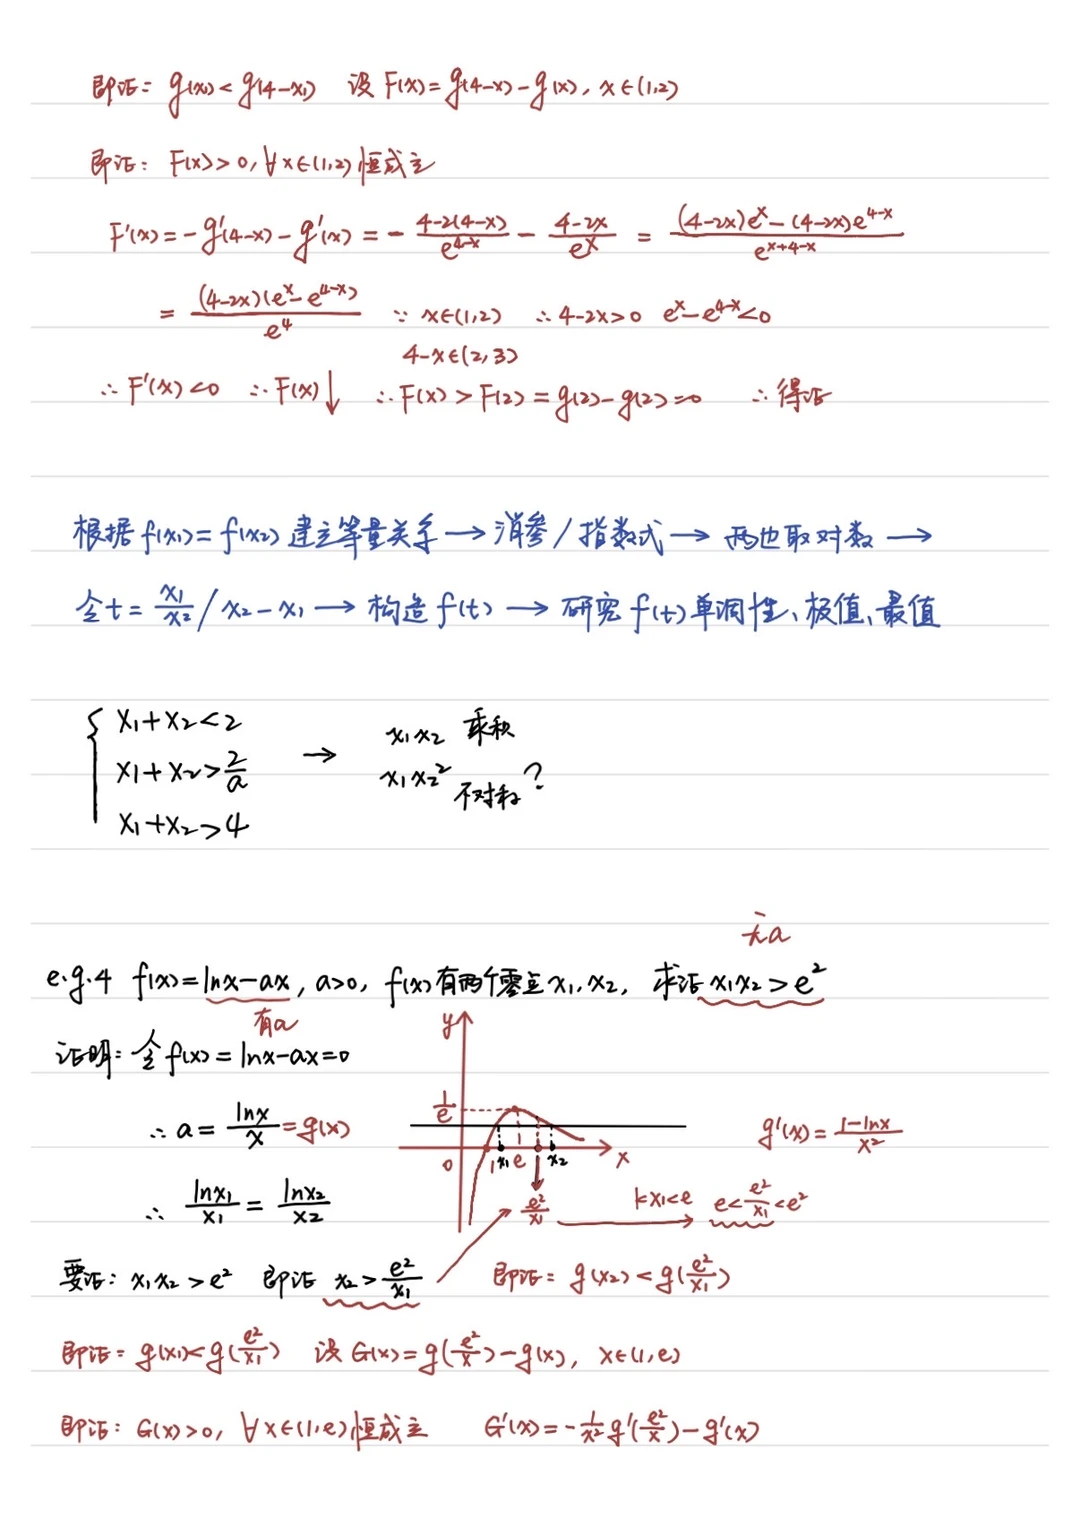 即证: g(x₁)<g(4-x₁) 设F(x)=g(4-x)-g(x), x∈(1,2)
即证: F(x)>0, ∀x∈(1,2)恒成立
F'(x)=-g'(4-x)-g'(x)=-\frac{4-2(4-x)}{e^{4-x}}-\frac{4-2x}{e^x}=\frac{(4-2x)e^x-(4-2x)e^{4-x}}{e^{x+4-x}}
=\frac{(4-2x)(e^x-e^{4-x})}{e^4} ∵ x∈(1,2) ∴4-2x>0 e^x-e^{4-x}<0
4-x∈(2,3)
∴F'(x)<0 ∴F(x)↓ ∴F(x)>F(2)=g(2)-g(2)=0 ∴得证
根据f(x₁)=f(x₂)建立等量关系→消参/指数式→两边取对数→
令t=\frac{x₁}{x₂}/x₂-x₁→构造f(t)→研究f(t)单调性、极值、最值
{ x₁+x₂<2
x₁+x₂>\frac{2}{a} →
x₁+x₂>4
x₁x₂ 乘积
x₁x₂² 不对称?
无a
e.g.4 f(x)=lnx-ax, a>0, f(x)有两个零点x₁,x₂, 求证x₁x₂>e²
有a
证明:令f(x)=lnx-ax=0
∴a=\frac{lnx}{x}=g(x)
y \frac{1}{e} 0 1 x₁ e x₂ x
g'(x)=\frac{1-lnx}{x²}
∴ \frac{lnx₁}{x₁}=\frac{lnx₂}{x₂}
\frac{e²}{x₁} → 1<x₁<e e<\frac{e²}{x₁}<e²
要证: x₁x₂>e² 即证 x₂>\frac{e²}{x₁} 即证: g(x₂)<g(\frac{e²}{x₁})
即证: g(x₁)<g(\frac{e²}{x₁}) 设G(x)=g(\frac{e²}{x})-g(x), x∈(1,e)
即证: G(x)>0, ∀x∈(1,e)恒成立 G'(x)=-\frac{1}{x²}g'(\frac{e²}{x})-g'(x)